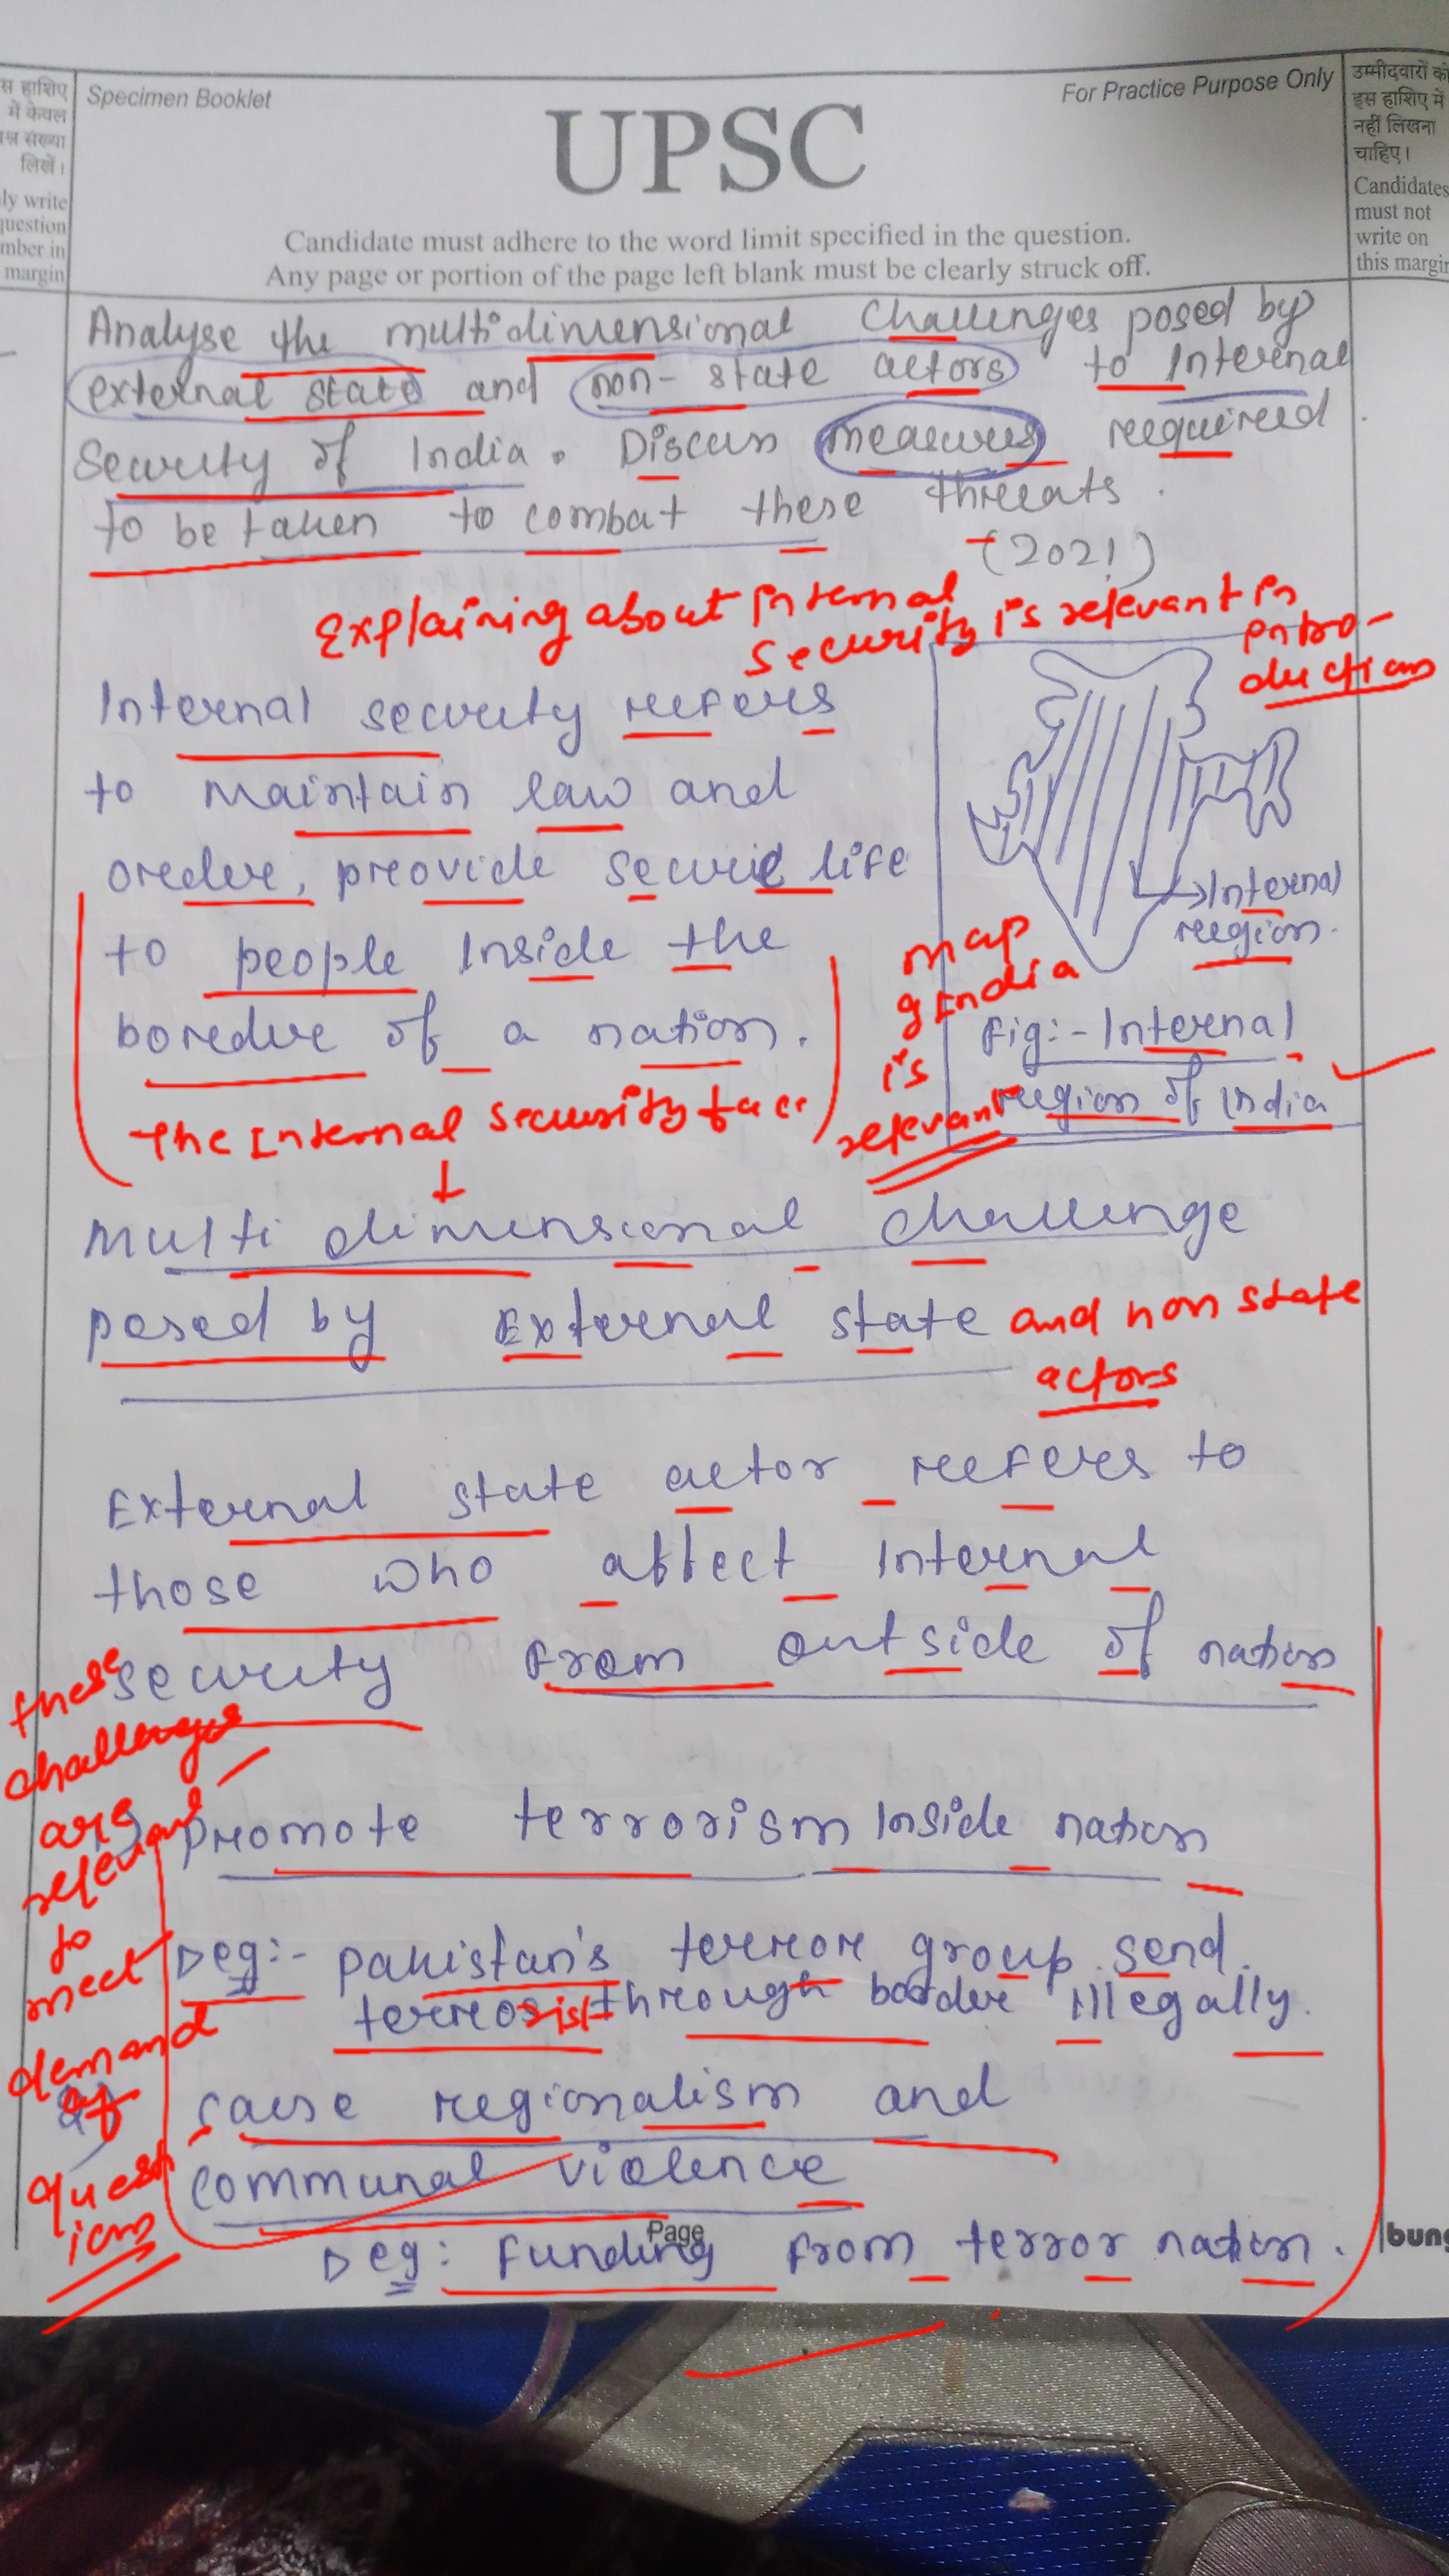 स हाशिए
में केवल
श्न संख्या
लिखें।
ly write
question
mber in
margin
Specimen Booklet
UPSC
For Practice Purpose Only
Candidate must adhere to the word limit specified in the question.
Any page or portion of the page left blank must be clearly struck off.
उम्मीदवारों को
इस हाशिए में
नहीं लिखना
चाहिए।
Candidates
must not
write on
this margin
Analyse the multidimensional challenges posed by
external state and non-state actors to Internal
Security of India. Discuss measures required
to be taken to combat these threats.
(2021)
Explaining about internal
security is relevant in
intro-
duction
Internal security refers
to maintain law and
order, provide secure life
to people Inside the
border of a nation.
→Internal
region.
Fig:- Internal
region of India
map
of India
is
relevant
The Internal security face
↓
Multi dimensional challenge
posed by External state and non state
actors
External state actor refers to
those who affect Internal
security from outside of nation
these
challenges
are
relevant
to
meet
demand
of
quest
ion
promote terrorism Inside nation
eg:- Pakistan's terror group send
terrorist through border illegally.
2) raise regionalism and
communal violence
eg: Funding from terror nation.
Page
bung